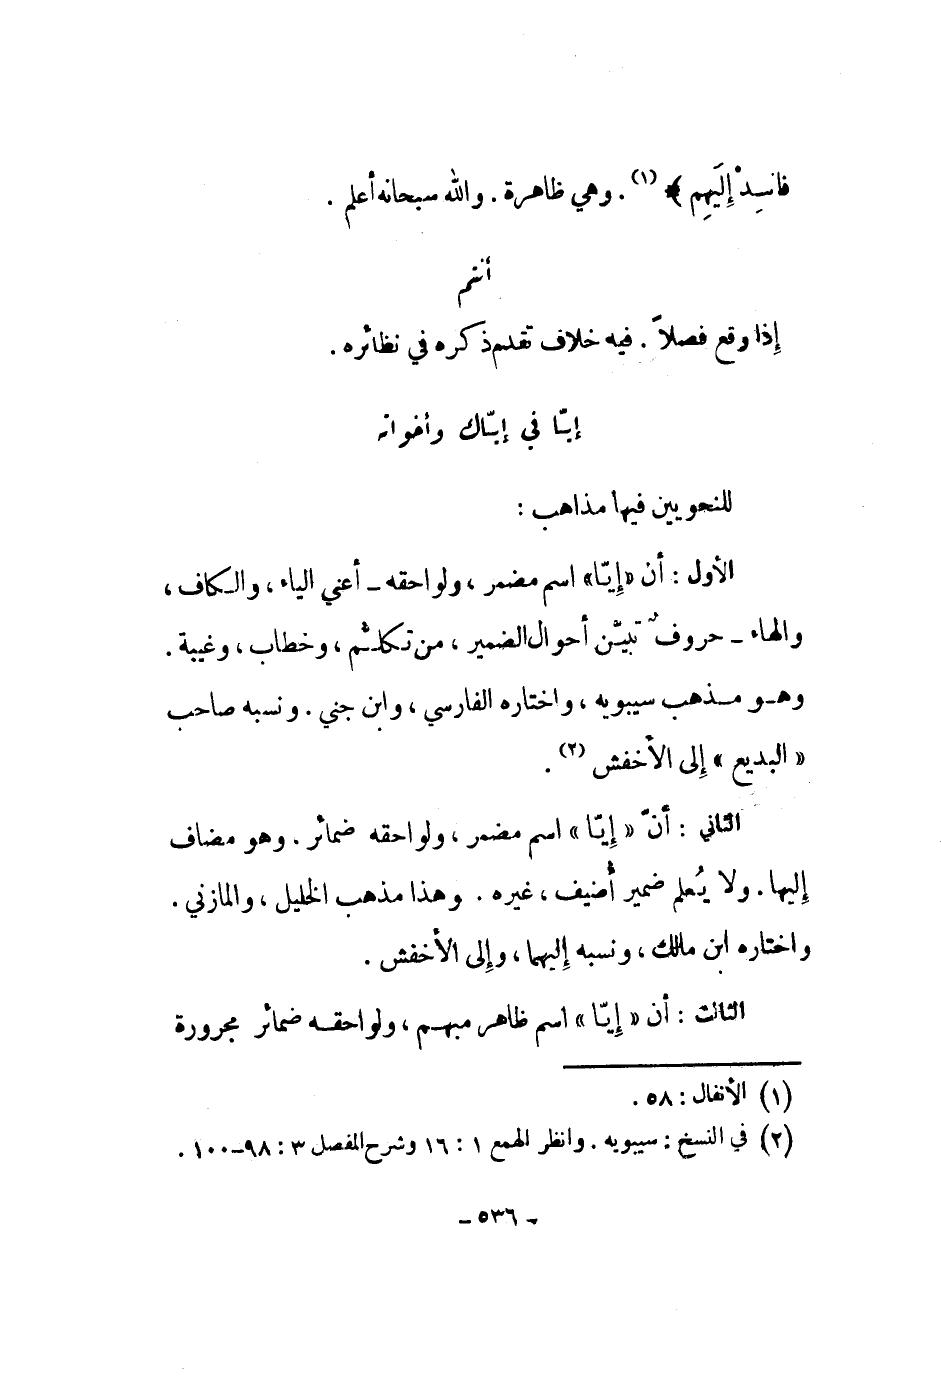 فانبِذْ إِلَيهِم ﴾ (١) . وهي ظاهرة . والله سبحانه أعلم .
أنتم
إِذا وقع فصلاً . فيه خلاف تقدم ذكره في نظائره .
إيّا في إيّاك وأخواته
للنحويين فيها مذاهب :
الأول : أن «إِيّا» اسم مضمر ، ولواحقه ــ أعني الياء ، والكاف ،
والهاء ــ حروفٌ تبيّن أحوال الضمير ، من تكلّم ، وخطاب ، وغيبة .
وهو مذهب سيبويه ، واختاره الفارسي ، وابن جني . ونسبه صاحب
« البديع » إِلى الأخفش (٢) .
الثاني : أنّ « إِيّا » اسم مضمر ، ولواحقه ضمائر . وهو مضاف
إِليها . ولا يُعلم ضمير أُضيف ، غيره . وهذا مذهب الخليل ، والمازني .
واختاره ابن مالك ، ونسبه إِليهما ، وإِلى الأخفش .
الثالث : أن « إِيّا » اسم ظاهر مبهم ، ولواحقه ضمائر مجرورة
(١) الأنفال : ٥٨ .
(٢) في النسخ : سيبويه . وانظر الهمع ١ : ١٦ وشرح المفصل ٣ : ٩٨–١٠٠ .
– ٥٣٦ –